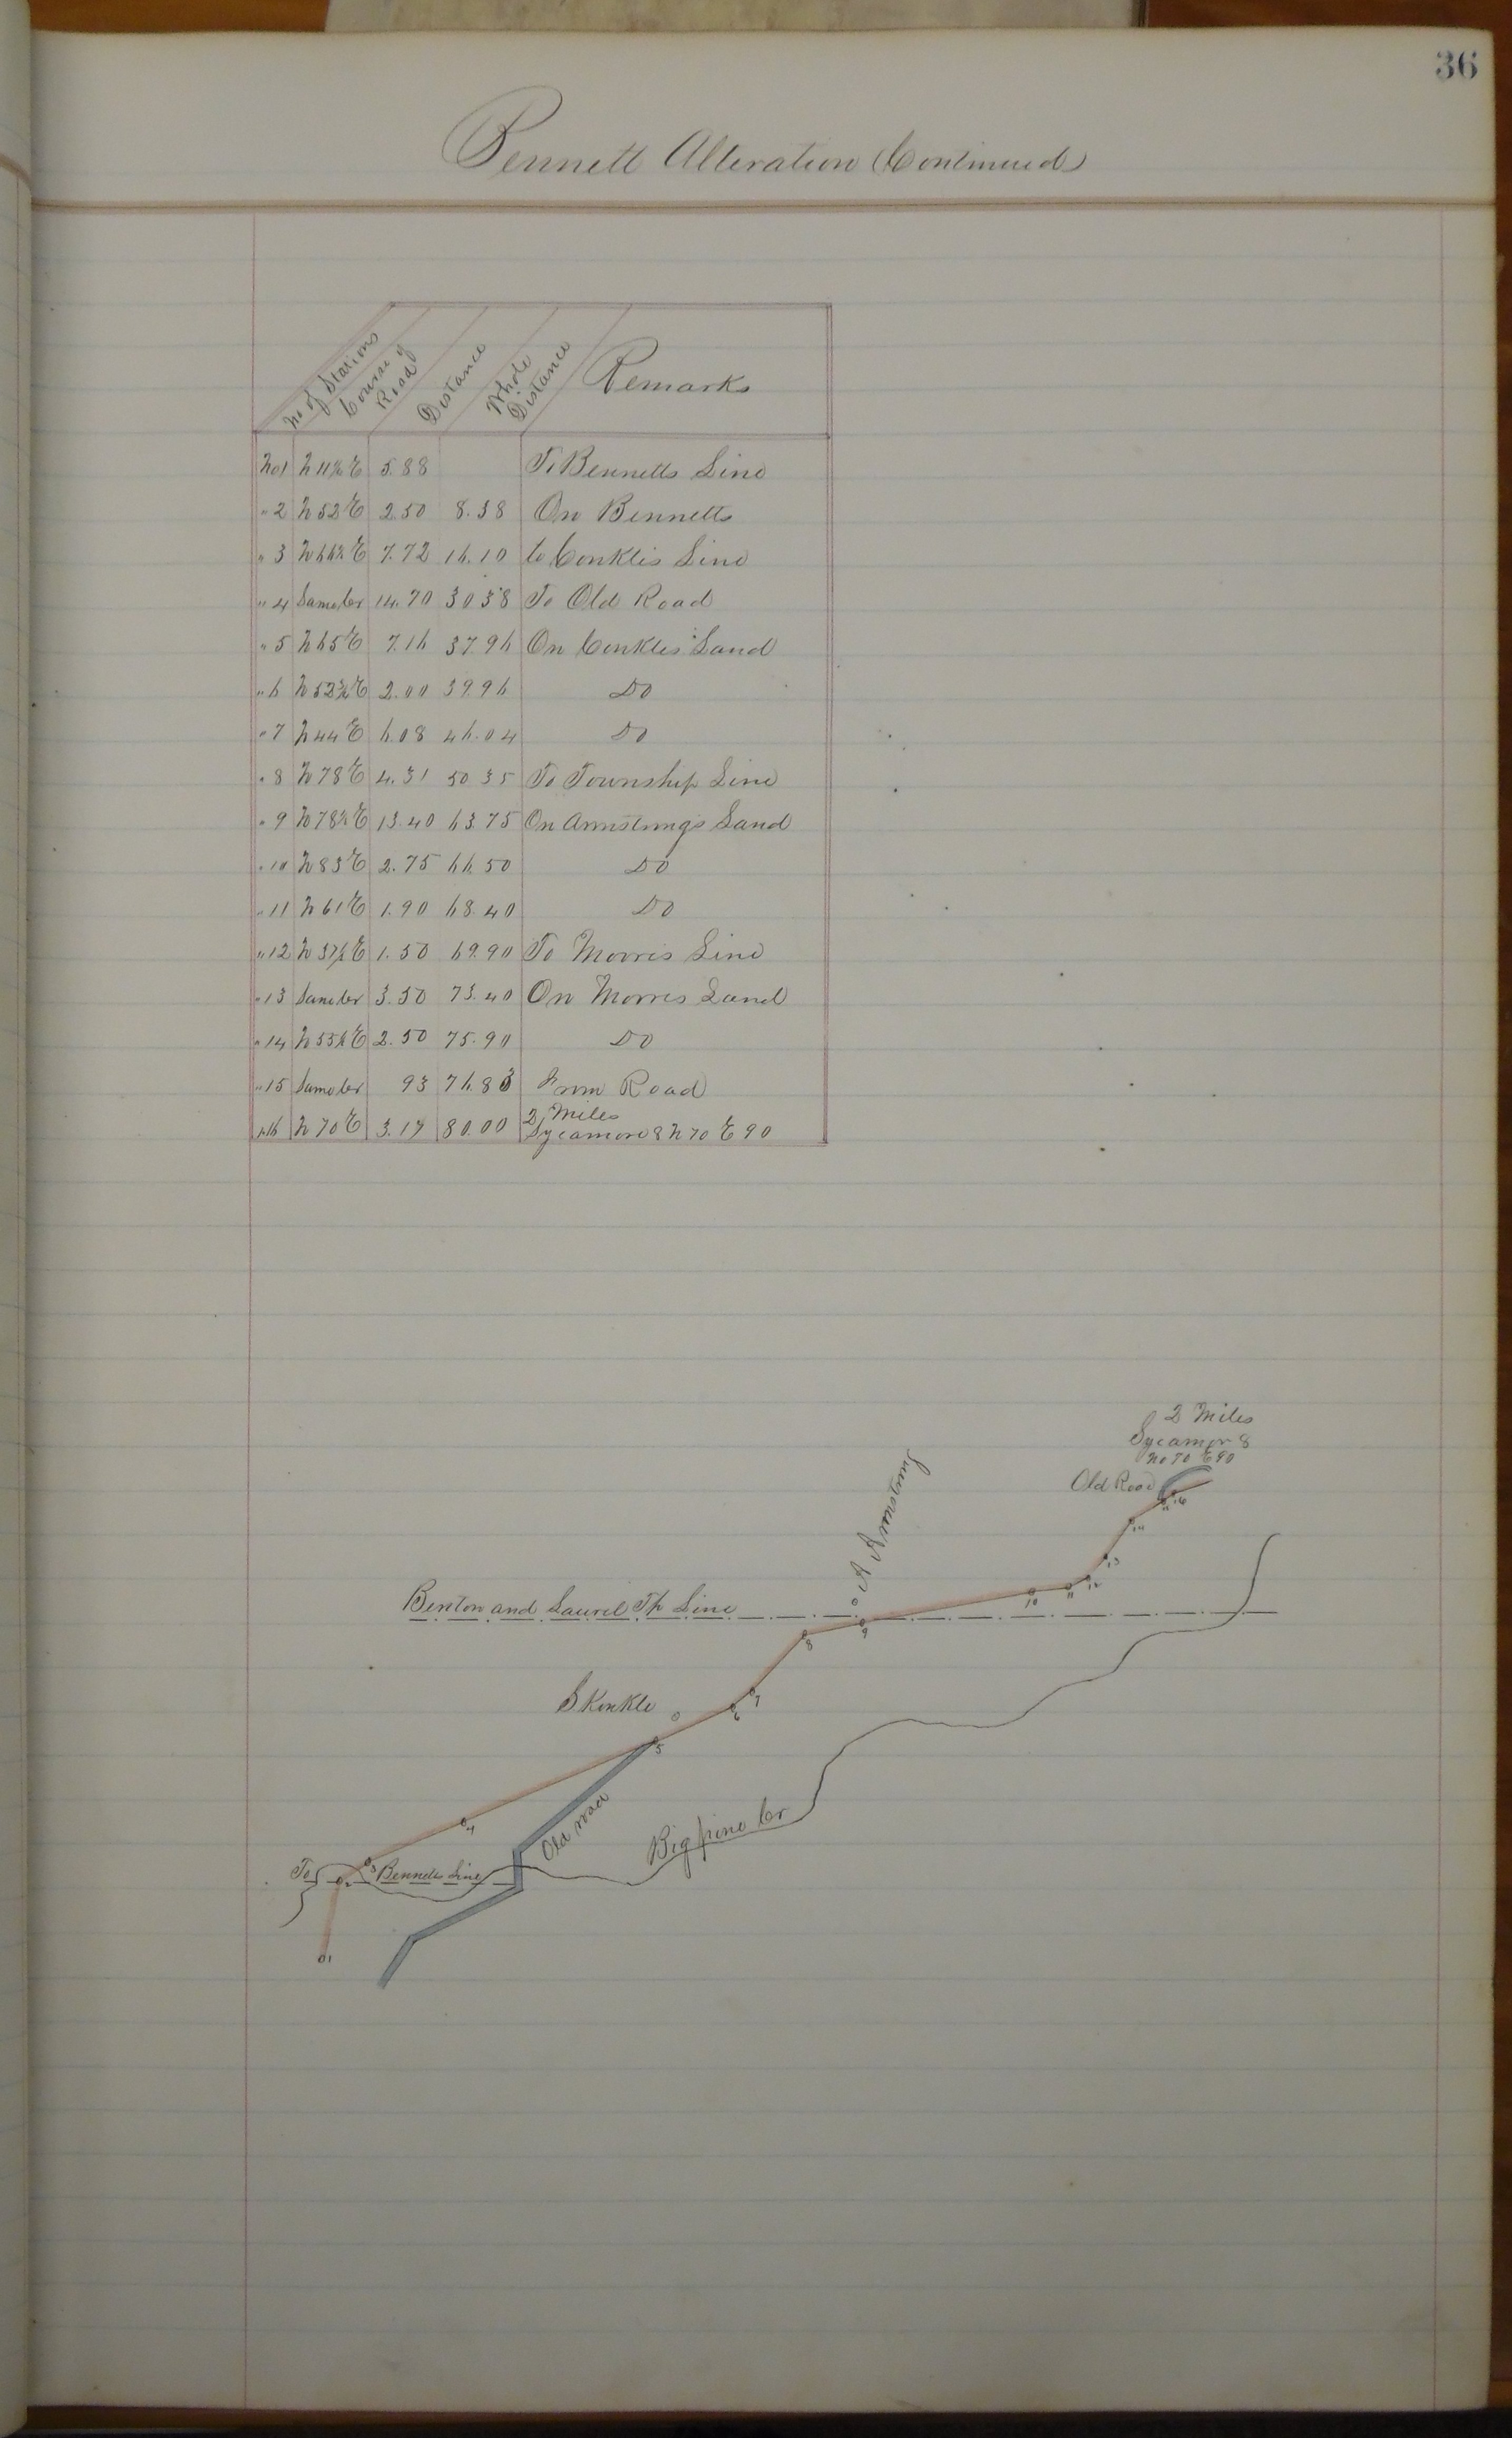 36
Bennett Alteration (Continued)
No of Stations
Course of Road
Distance
Whole Distance
Remarks
No 1 N 11½ E 5.88 To Bennetts Line
" 2 N 52 E 2.50 8.38 On Bennetts
" 3 N 66½ E 7.72 16.10 to Conkles Line
" 4 Same ber 14.70 30 38 To Old Road
" 5 N 65 E 7.16 37.96 On Conkles Land
" 6 N 52¾ E 2.00 39.96 Do
" 7 N 44 E 6.08 46.04 Do
" 8 N 78 E 4.31 50 35 To Township Line
" 9 N 78½ E 13.40 63.75 On Armstrongs Land
" 10 N 83 E 2.75 66.50 Do
" 11 N 61 E 1.90 68.40 Do
" 12 N 37½ E 1.50 69.90 To Morris Line
" 13 Same ber 3.50 73.40 On Morris Land
" 14 N 55½ E 2.50 75.90 Do
" 15 Same ber 93 76.83 From Road
" 16 N 70 E 3.17 80.00 2 Miles
Sycamore 8 N 70 E 90
2 Miles
Sycamor 8
No 70 E 90
Old Road
16
15
14
13
12
11
10
A Armstrong
Benton and Laurel Tp Line
9
8
S Konkle
7
6
5
Old road
4
Big pine Cr
3
To Bennetts Line
2
1